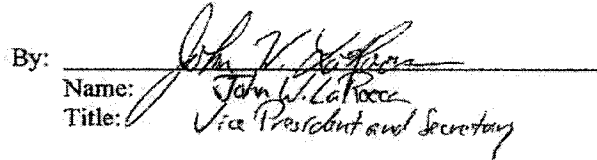 By: John V. LaRocca
Name: John W. LaRocca
Title: Vice President and Secretary